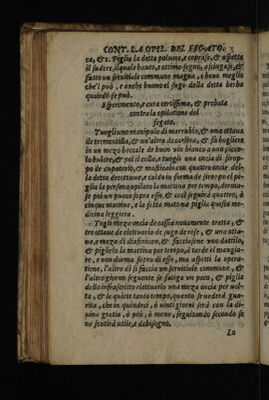 CONT. LA OPIL. DEL FEGATO.
ca, & c. Piglia la detta poluere, e coprase, & aspetta
il sudore, ilquale hauto, e attimo segno, asciugase, &
fatto un seruitiale commune magna, e bene meglio
che'l può, e anche buono il sugo della detta herba
quando se può.
Esperimento, e cura certissima, & probata
contra la opilatione del
fegato.
Tuogli uno manipulo di marrubio, & una ottaua
de termentilla, & un'altra de cerfina, & fa bogliere
in un mezo boccale de buon vin bianco a uno sicca
lo bulore, & poi il colla, e tuogle una oncia di sirop-
po de eupatorio, e mastica lo con quattro oncie del-
la detta decottione, e calda in forma de siropo el pi-
glia la persona opilata la mattina per tempo, dorma-
se poi un pezzo sopra esso, & così seguirà quattro, ò
cinque mattine, e la sesta mattina piglia questa me-
dicina leggiera.
Togle mezo oncia de cassia nouamente tratta, &
tre ottaue de elettuario de sugo de rose, & una otta-
ua, e meza di diafinicon, & facciasene uno bottile,
& piglielo la mattina per tempo, à tardo el mangia-
re, e non dorma sopra di esso, ma aspetti la opera-
tione, l'altro dì si faccia un seruitiale commune, &
l'altro giorno seguente se satiga un poco, & piglia
dello infrascritto elettuario una meza oncia per uol-
ta, & se quiete tanto tempo, quanto se uederà gua-
rita, che in quindeci, ò uinti giorni serà con la di-
uina gratia, ò più, ò meno, seguitando secondo se
ne sentirà utile, e debisogno.
Lo